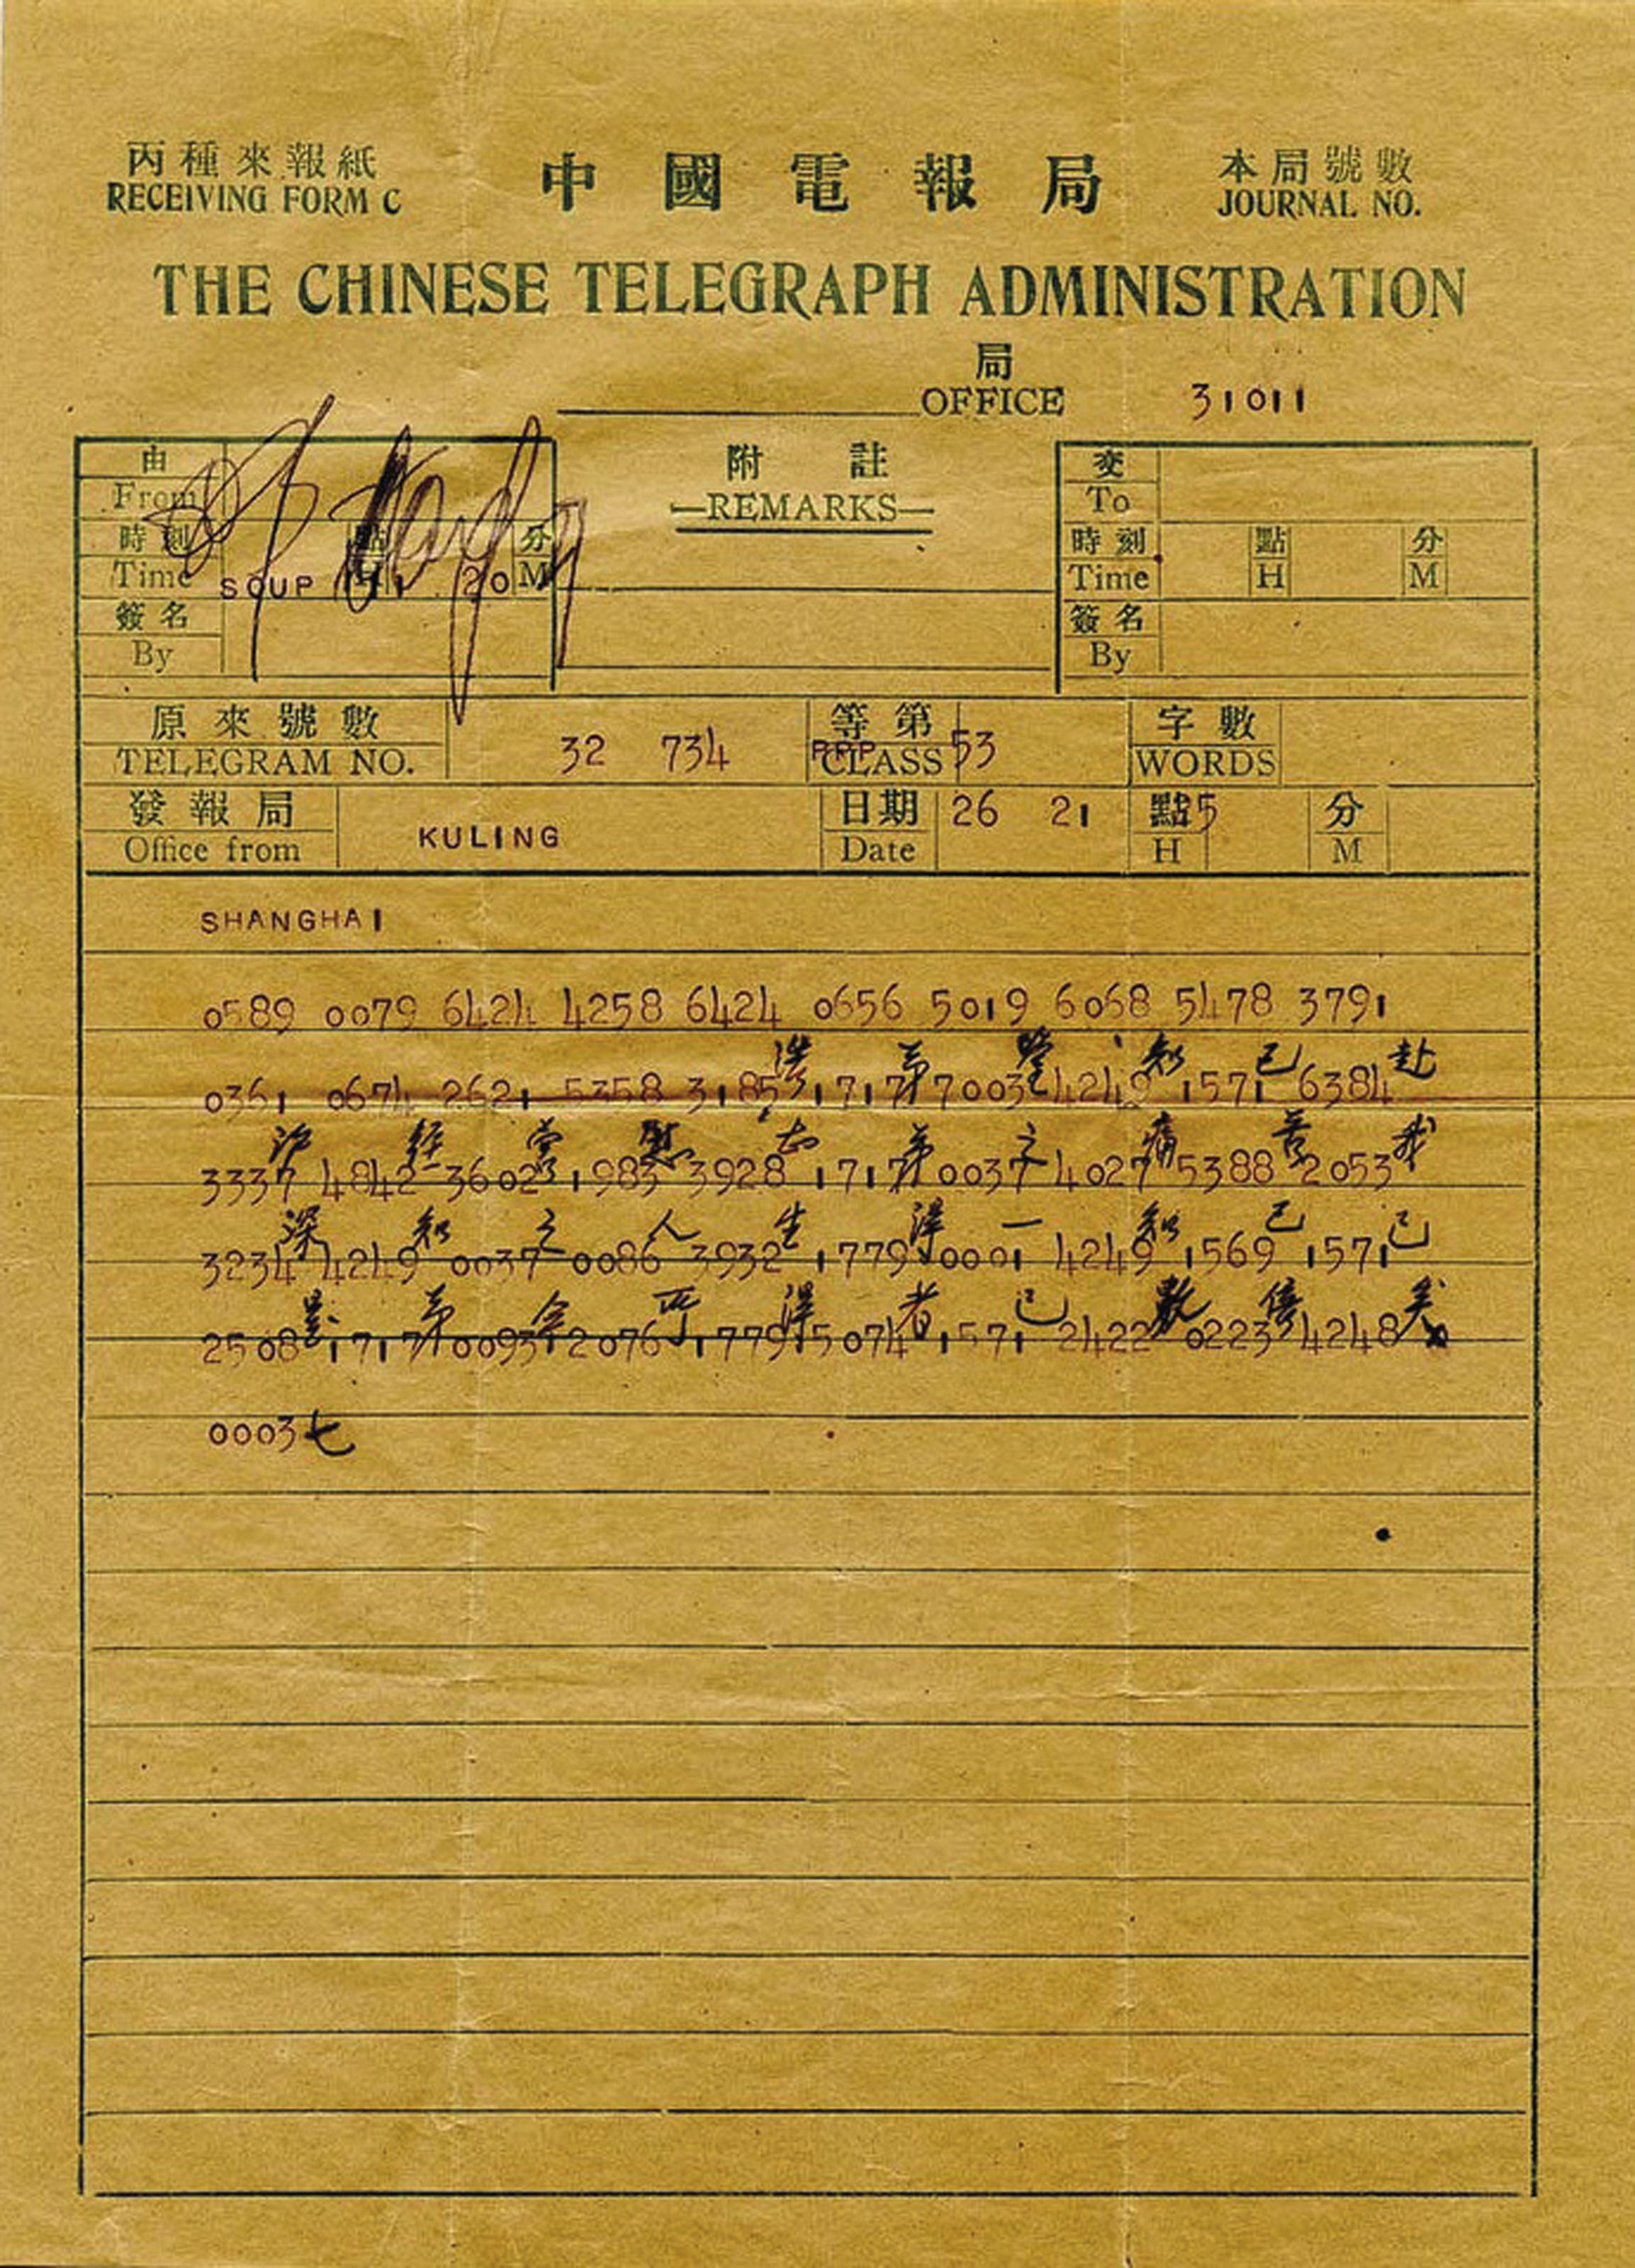 丙種來報紙 中國電報局 本局號數
RECEIVING FORM C JOURNAL NO.
THE CHINESE TELEGRAPH ADMINISTRATION
局
OFFICE 31011
由 附註 交
From REMARKS To
時刻 點 分 時刻 點 分
Time SOUP H 1 20 M Time H M
簽名 簽名
By By
原來號數 等第 字數
TELEGRAM NO. 32 734 PPP CLASS 53 WORDS
發報局 日期 點 分
Office from KULING Date 26 21 5 H M
SHANGHAI
0589 0079 6424 4258 6424 0656 5019 6068 5478 3791
浩 弟 鑒 知 已 赴
0361 0674 2621 5358 3185 1717 7003 4249 1571 6384
沪 經 當 慰 志 弟 之 痛 苦 我
3337 4842 3602 1983 3928 1717 0037 4027 5388 2053
深 知 之 人 生 得 一 知 己 已
3234 4249 0037 0086 3932 1779 0001 4249 1569 1571
是 弟 今 所 得 者 已 數 倍 矣
2508 1717 0093 2076 1779 5074 1571 2422 0223 4248
0003 七